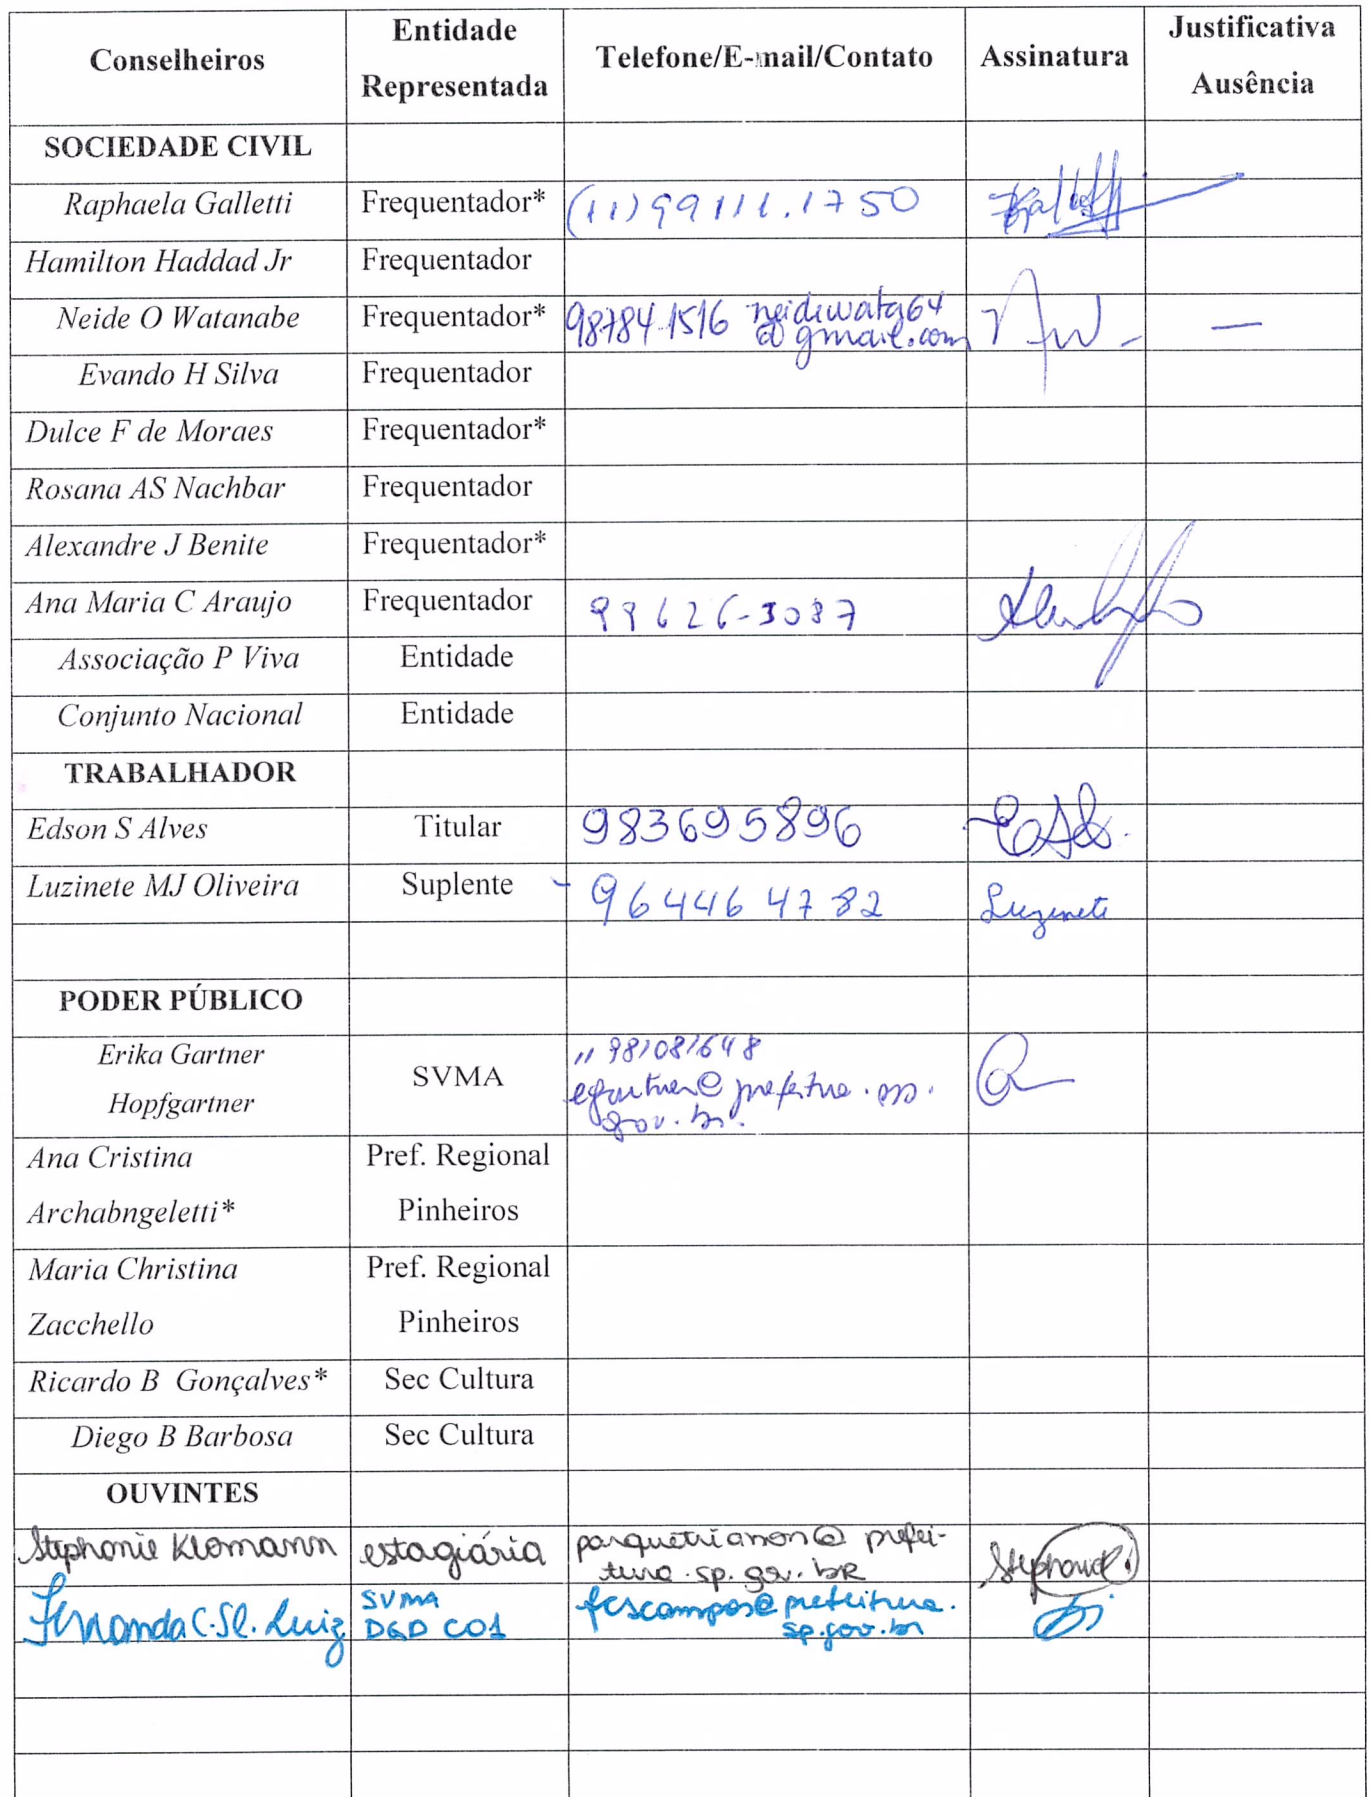 Conselheiros Entidade Representada Telefone/E-mail/Contato Assinatura Justificativa Ausência
SOCIEDADE CIVIL
Raphaela Galletti Frequentador* (11) 99111.1750
Hamilton Haddad Jr Frequentador
Neide O Watanabe Frequentador* 98784-1516 neidewata64
@gmail.com —
Evando H Silva Frequentador
Dulce F de Moraes Frequentador*
Rosana AS Nachbar Frequentador
Alexandre J Benite Frequentador*
Ana Maria C Araujo Frequentador 99626-3087
Associação P Viva Entidade
Conjunto Nacional Entidade
TRABALHADOR
Edson S Alves Titular 983695896
Luzinete MJ Oliveira Suplente - 96446 4782 Luzinete
PODER PÚBLICO
Erika Gartner
Hopfgartner SVMA 11 981081648
egartner@prefeitura.sp.
gov.br.
Ana Cristina Pref. Regional
Archabngeletti* Pinheiros
Maria Christina Pref. Regional
Zacchello Pinheiros
Ricardo B Gonçalves* Sec Cultura
Diego B Barbosa Sec Cultura
OUVINTES
Stephanie Klomann estagiária parquetrianon@prefei-
tura.sp.gov.bR Stephanie
Fernanda C. Luiz SVMA
DGD CO1 fcscampos@prefeitura.
sp.gov.br